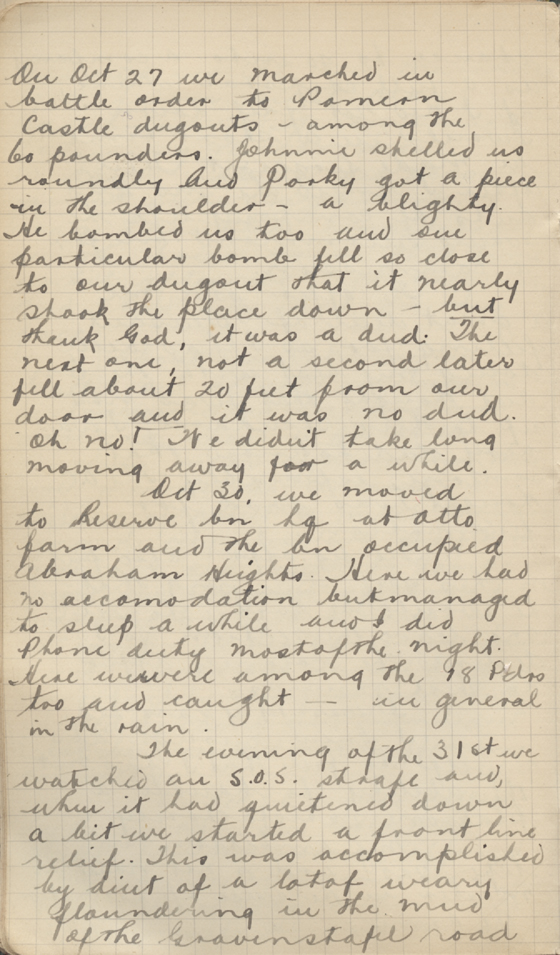 On Oct 27 we marched in
battle order to Pomern
Castle dugouts - among the
60 pounders. Johnnie shelled us
roundly and Porky got a piece
in the shoulder - a blighty.
He bombed us too and one
particular bomb fell so close
to our dugout that it nearly
shook the place down - but
thank God, it was a dud. The
next one, not a second later
fell about 20 feet from our
door and it was no dud.
Oh no! We didn't take long
moving away for a while.
Oct 30, we moved
to Reserve bn hq at Otto
farm and the bn occupied
Abraham Heights. Here we had
no accomodation but managed
to sleep a while and I did
Phone duty most of the night.
Here we were among the 18 Pdrs
too and caught — in general
in the rain.
The evening of the 31st we
watched an S.O.S. strafe and,
when it had quietened down
a bit we started a front line
relief. This was accomplished
by dint of a lot of weary
floundering in the mud
of the Gravenstafel road